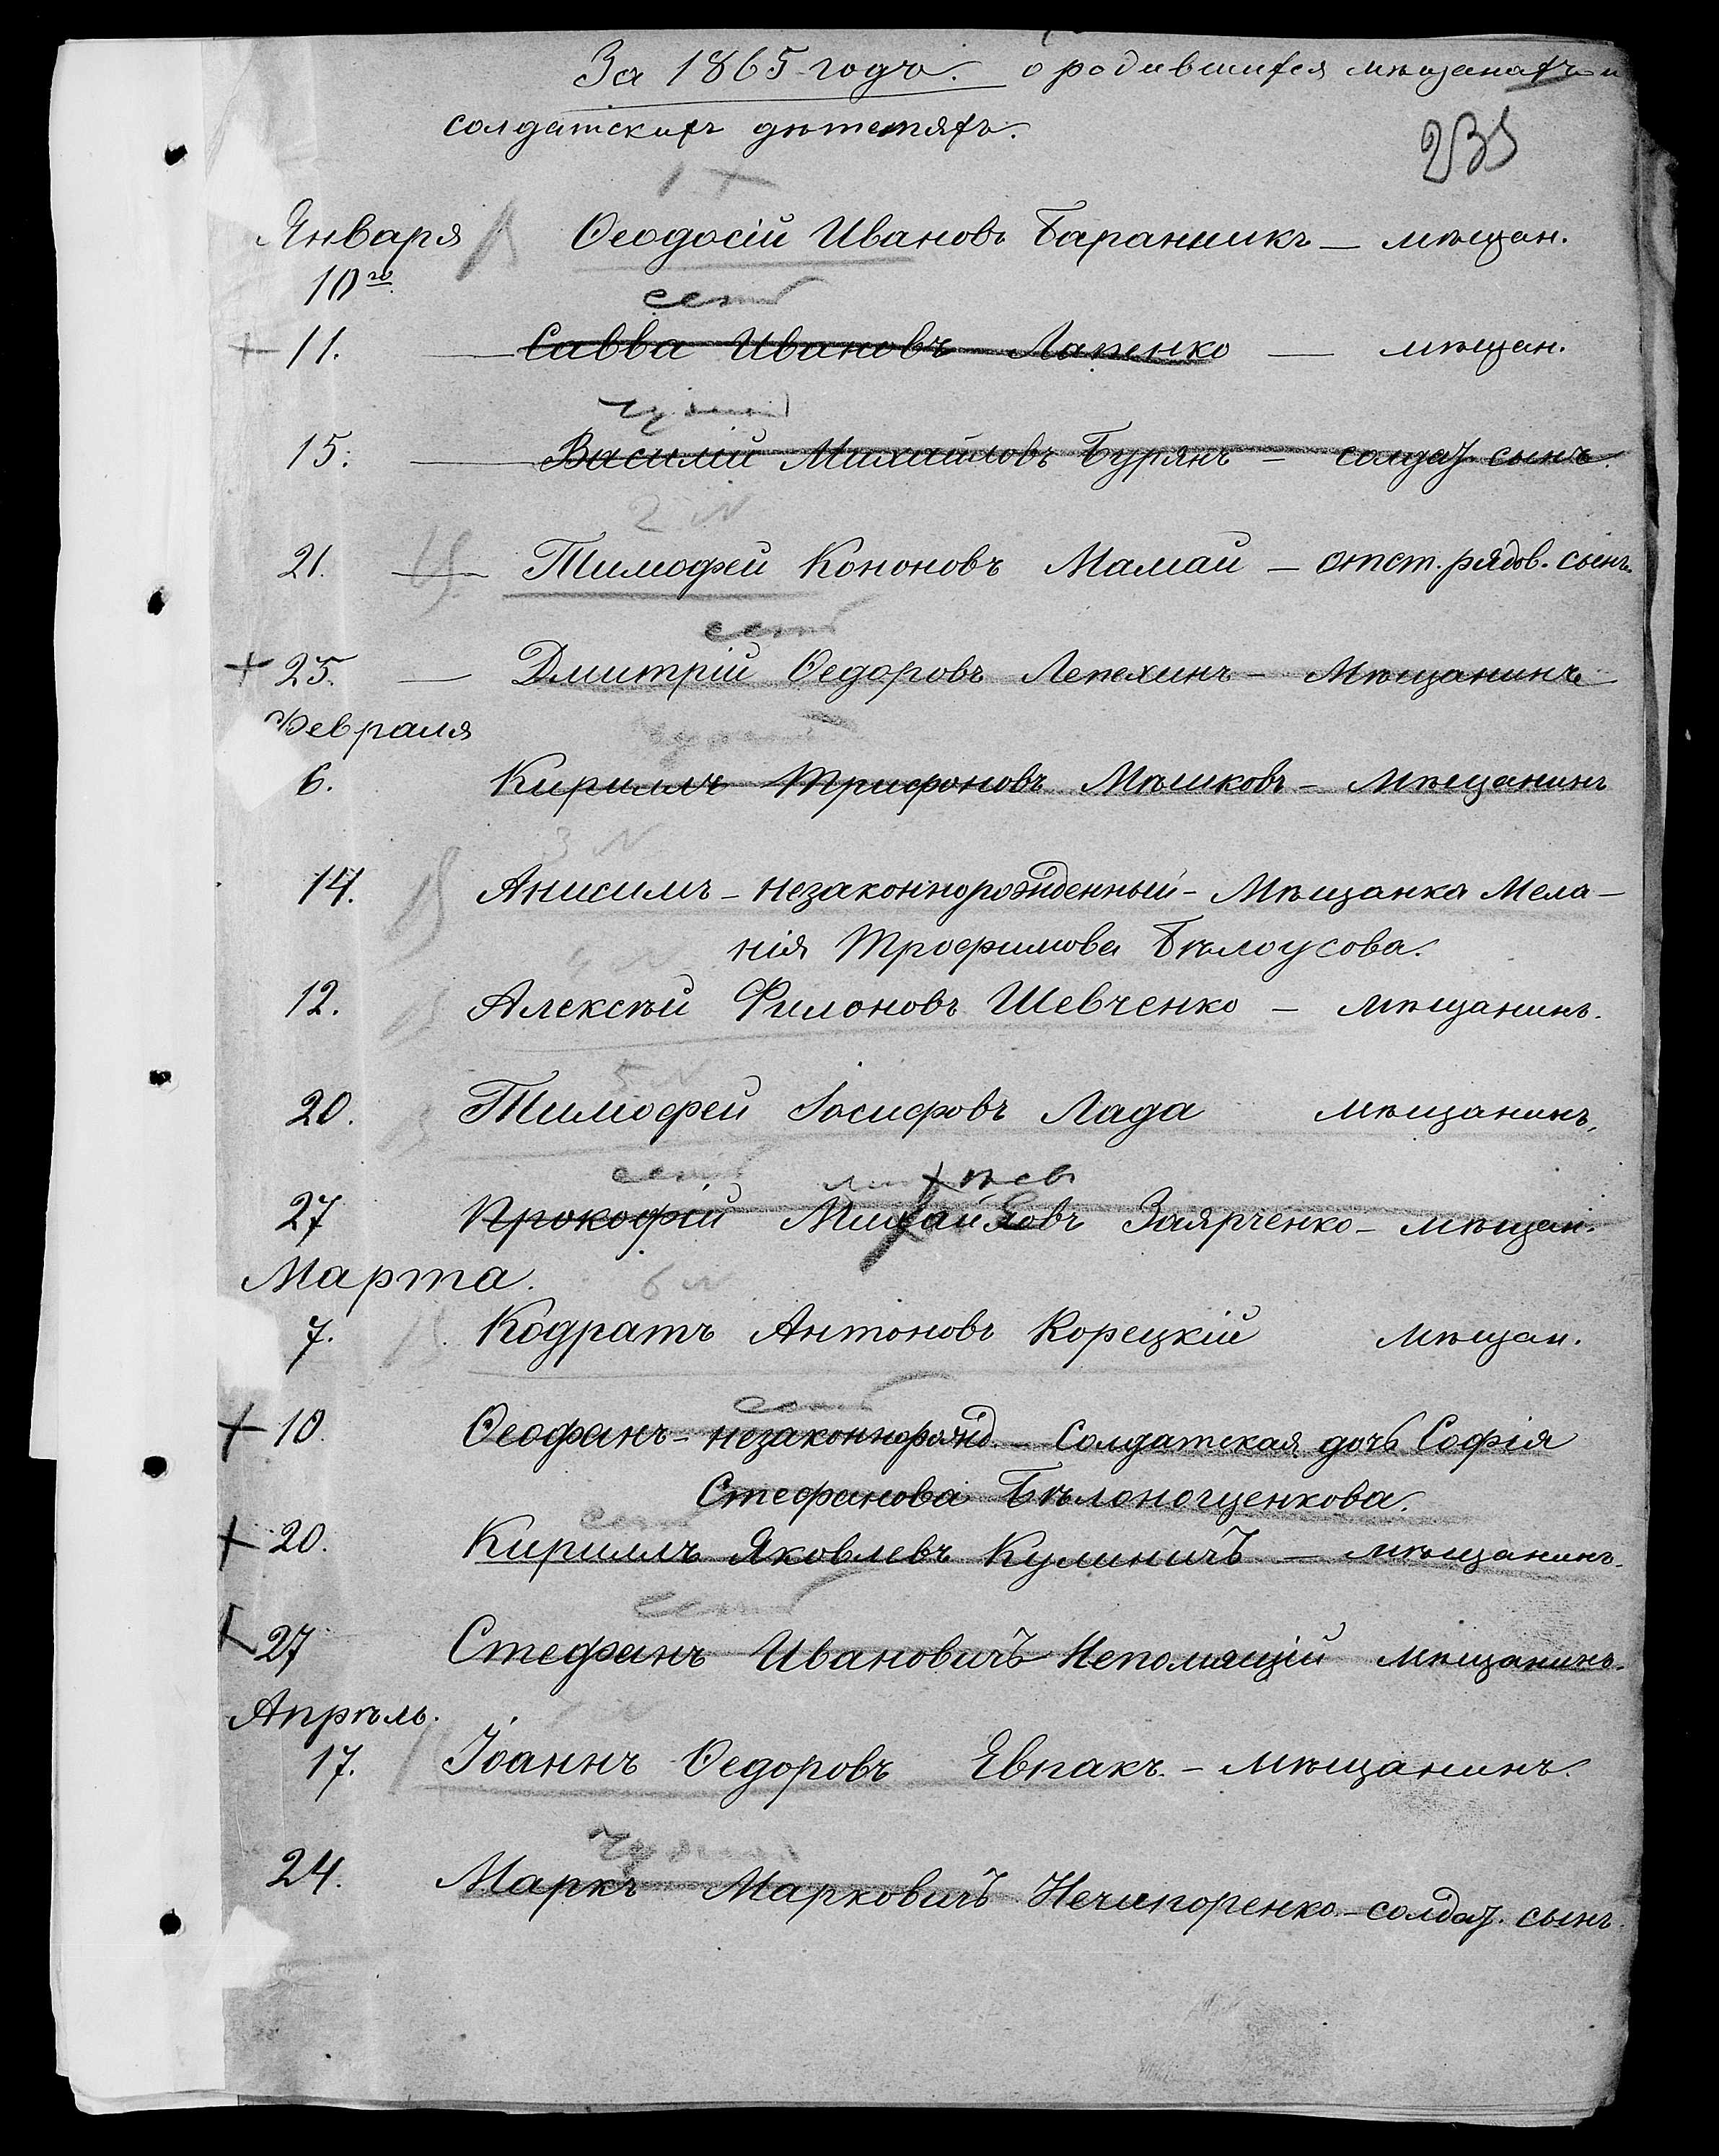 За 1865 годъ. о родившихся мѣщанахъ и
солдатскихъ дѣтетяхъ.
235
1 +
Января Ѳеодосій Ивановъ Баранникъ — мѣщан.
10го
есть
+ 11. — Савва Ивановъ Лапенко — мѣщан.
чужой
15. — Василій Михайловъ Бурянъ — солдат. сынъ.
2 N
21. — Тимофей Кононовъ Мамай — отст. рядов. сынъ.
есть
+ 25. — Дмитрій Ѳедоровъ Лепехинъ — Мѣщанинъ
Февраля
чужой
6. Кириллъ Трифоновъ Мѣшковъ — Мѣщанинъ
3 N
14. Анисимъ — незаконнорожденный — Мѣщанка Мела-
нія Трофимова Бѣлоусова.
4 N
12. Алексѣй Филоновъ Шевченко — мѣщанинъ.
5 N
20. Тимофей Іосифовъ Лада мѣщанинъ,
есть михѣев
27 Прокофій Михайловъ Заярченко — мѣщан.
Марта.
6 N
7. Кодратъ Антоновъ Корецкій мѣщан.
есть
+ 10. Ѳеофанъ — незаконнорожд. — Солдатская дочь Софія
Стефанова Бѣлоногценкова.
есть
+ 20. Кириллъ Яковлевъ Кулиничъ — мѣщанинъ.
есть
27 Стефанъ Ивановичъ Непомящій мѣщанинъ.
Апрѣль.
17. Іоаннъ Ѳедоровъ Евпакъ. — мѣщанинъ.
чужой
24. Маркъ Марковичъ Нечипоренко — солдат. сынъ.